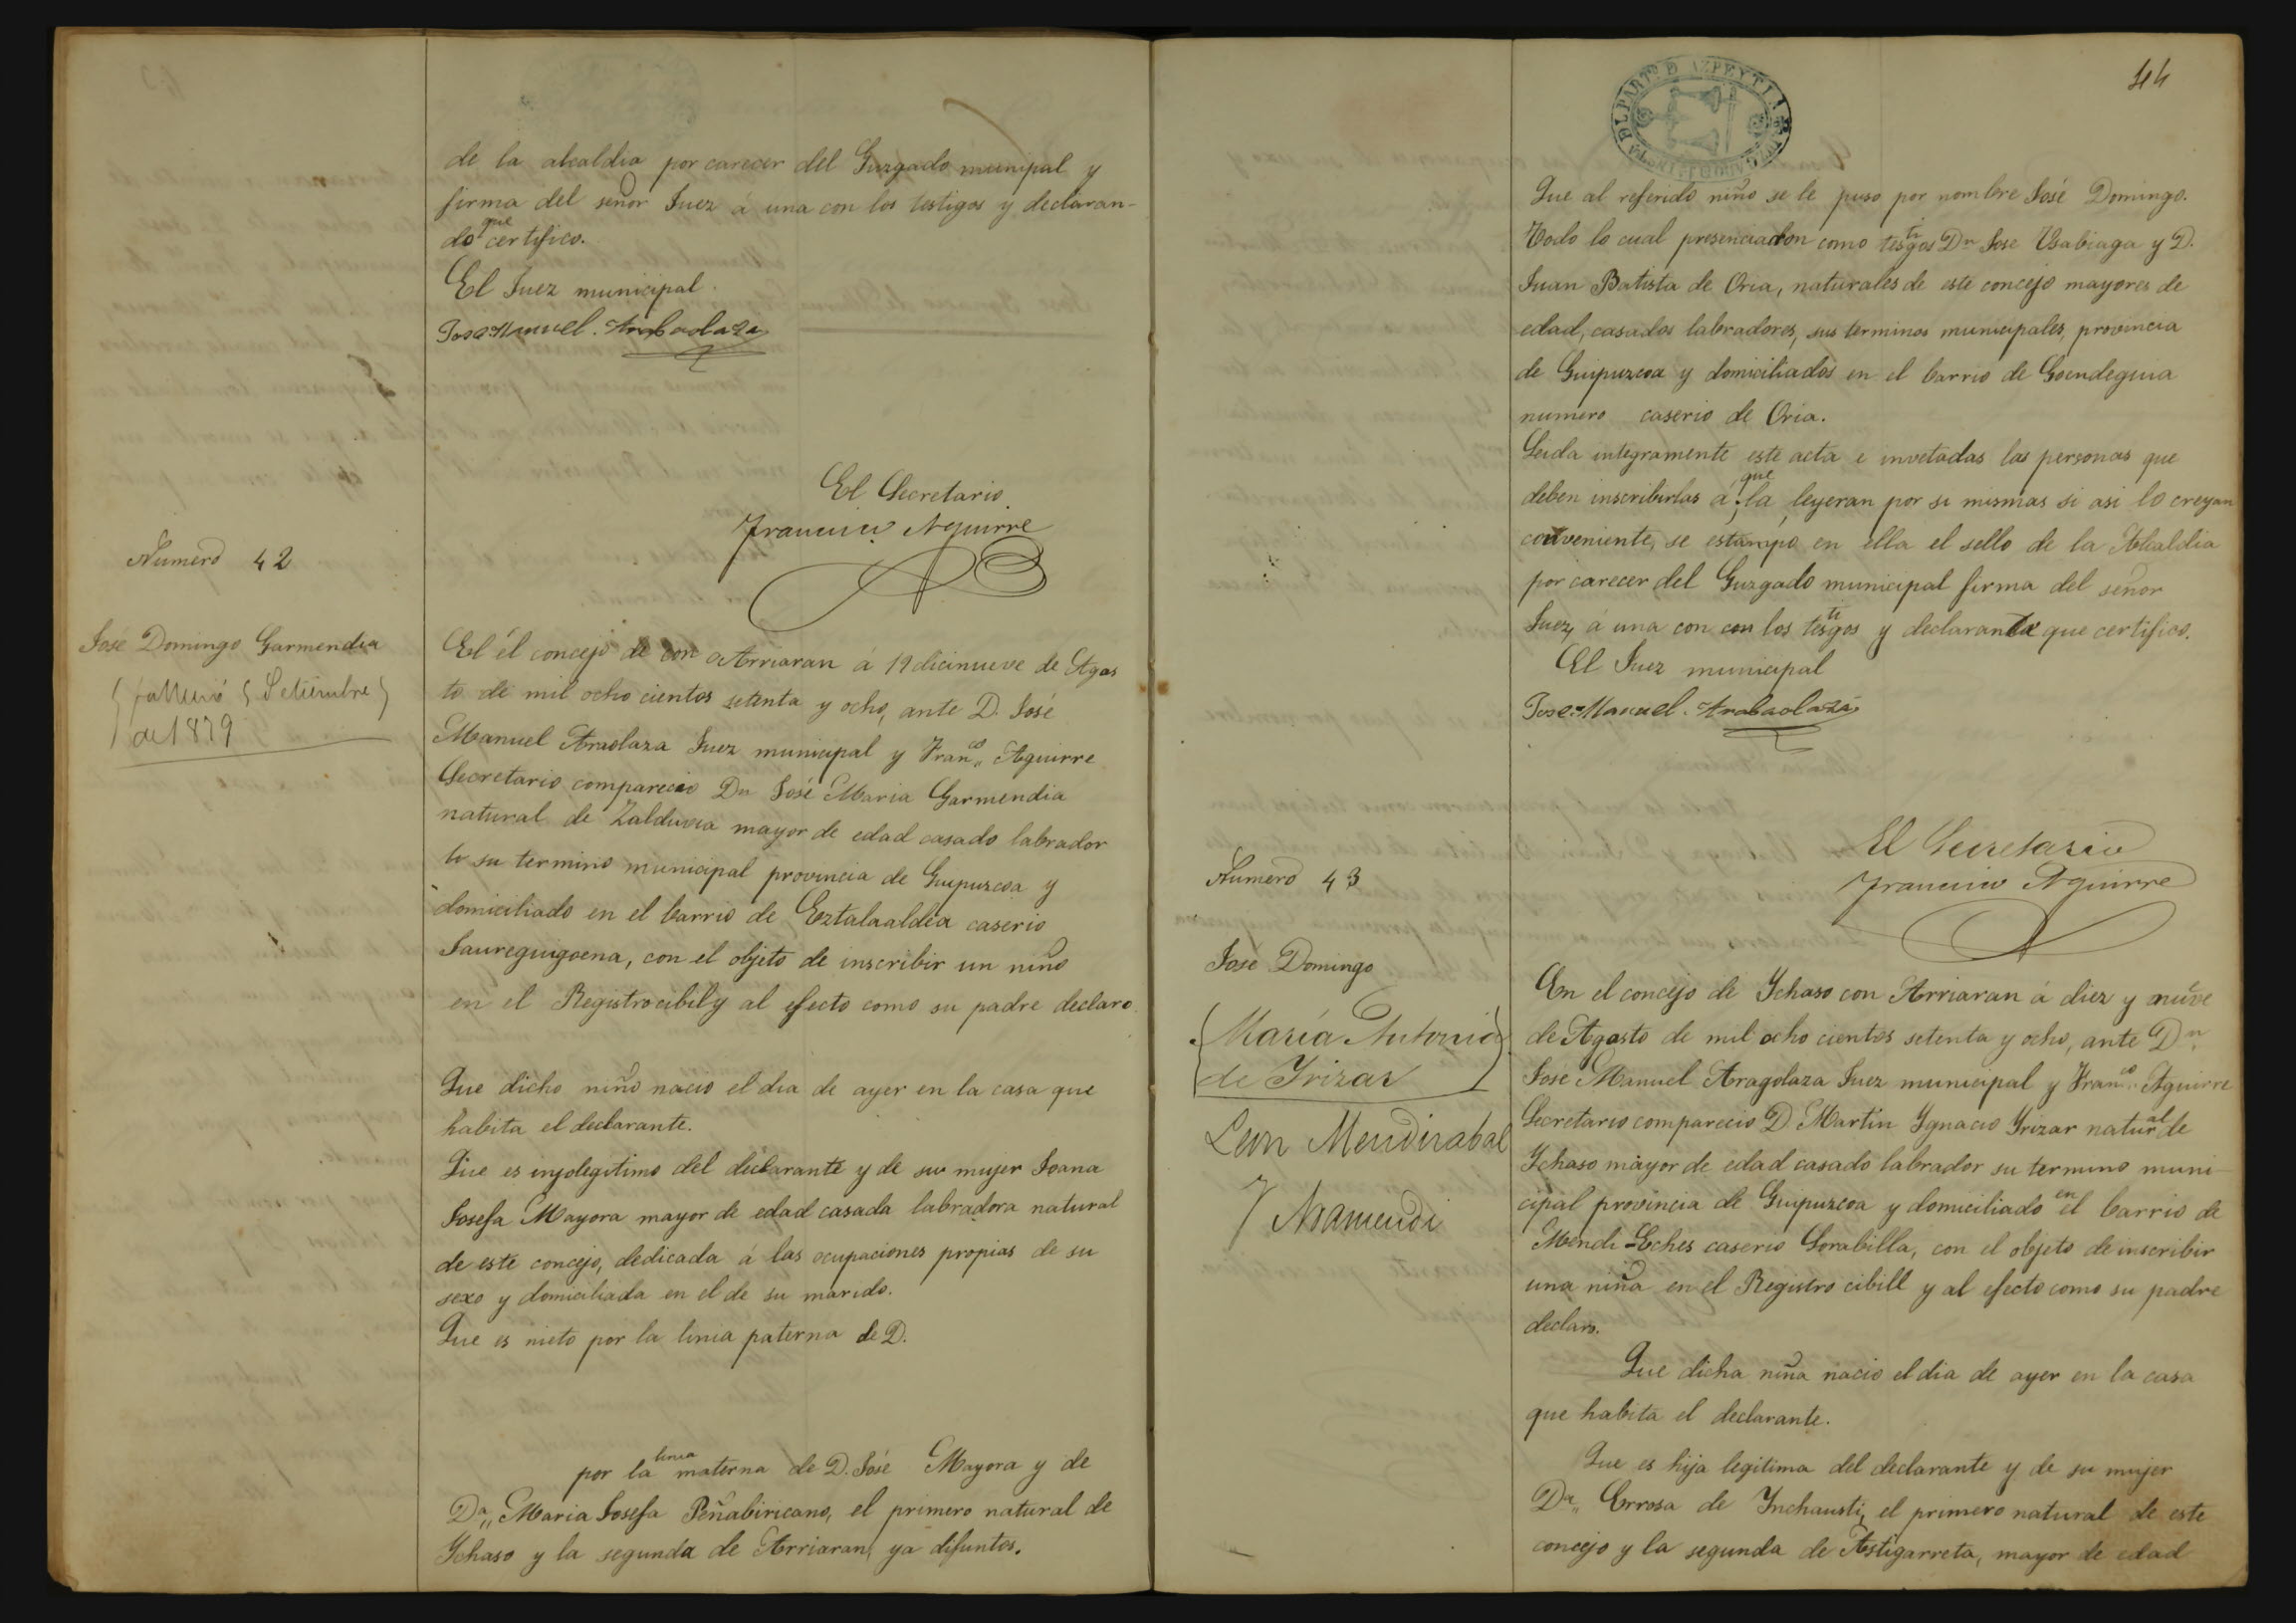 de la alcaldia por carecer del Guzgado munipal y
firma del señor Juez á una con los testigos y declaran-
do que certifico.
El Juez municipal.
Jose Manuel. Arabaolaza
El Secretario
Francisco Aguirre
Numero 42
José Domingo Garmendia
falleció 5 Setiembre
de 1879
El él concejo de con Arriaran á 19 dicinueve de Agos
to de mil ocho cientos setenta y ocho, ante D. José
Manuel Araolaza Juez municipal y Franco Aguirre
Secretario comparecio Dn José Maria Garmendia
natural de Zalduvia mayor de edad casado labrador
su termino municipal provincia de Guipuzcoa y
domiciliado en el barrio de Eztalaaldea caserio
Jaureguigoena, con el objeto de inscribir un niño
en el Registro cibil y al efecto como su padre declaro.
Que dicho niño nacio el dia de ayer en la casa que
habita el declarante.
Que es injolegitimo del declarante y de su mujer Joana
Josefa Mayora mayor de edad casada labradora natural
de este concejo, dedicada á las ocupaciones propias de su
sexo y domiciliada en el de su marido.
Que es nieto por la linia paterna de D.
por la linia materna de D. José Mayora y de
Da Maria Josefa Peñabiricano, el primero natural de
Ychaso y la segunda de Arriaran, ya difuntos.
44
Que al referido niño se le puso por nombre José Domingo.
Todo lo cual presenciaron como testigos Dn Jose Usabiaga y D.
Juan Batista de Oria, naturales de este concejo mayores de
edad, casados labradores, sus terminos municipales, provincia
de Guipuzcoa y domiciliados en el barrio de Goendeguia
numero caserio de Oria.
Leida integramente este acta e invetadas las personas que
deben inscribirlas á que la leyeran por si mismas si asi lo creyan
conveniente, se estampo en ella el sello de la Alcaldia
por carecer del Guzgado municipal firma del señor
Juez, á una con con los testigos y declarante que certifico.
El Juez municipal
Jose Manuel. Arabaolaza
El Secretario
Francisco Aguirre
Numero 43
José Domingo
María Antonia
de Yrizar
Leon Mendizabal
Y Aramendi
En el concejo de Ychaso con Arriaran á diez y nuve
de Agosto de mil ocho cientos setenta y ocho, ante Dn
Jose Manuel Aragolaza Juez municipal y Franco Aguirre
Secretario comparecio D. Martin Ygnacio Yrizar natural de
Ychaso mayor de edad casado labrador su termino muni-
cipal provincia de Guipuzcoa y domiciliado en el barrio de
Mendi Eches caserio Gorabilla, con el objeto de inscribir
una niña en el Registro cibill y al efecto como su padre
declaro.
Que dicha niña nacio el dia de ayer en la casa
que habita el declarante.
Que es hija legitima del declarante y de su mujer
Da Errosa de Ynchausti, el primero natural de este
concejo y la segunda de Astigarreta, mayor de edad